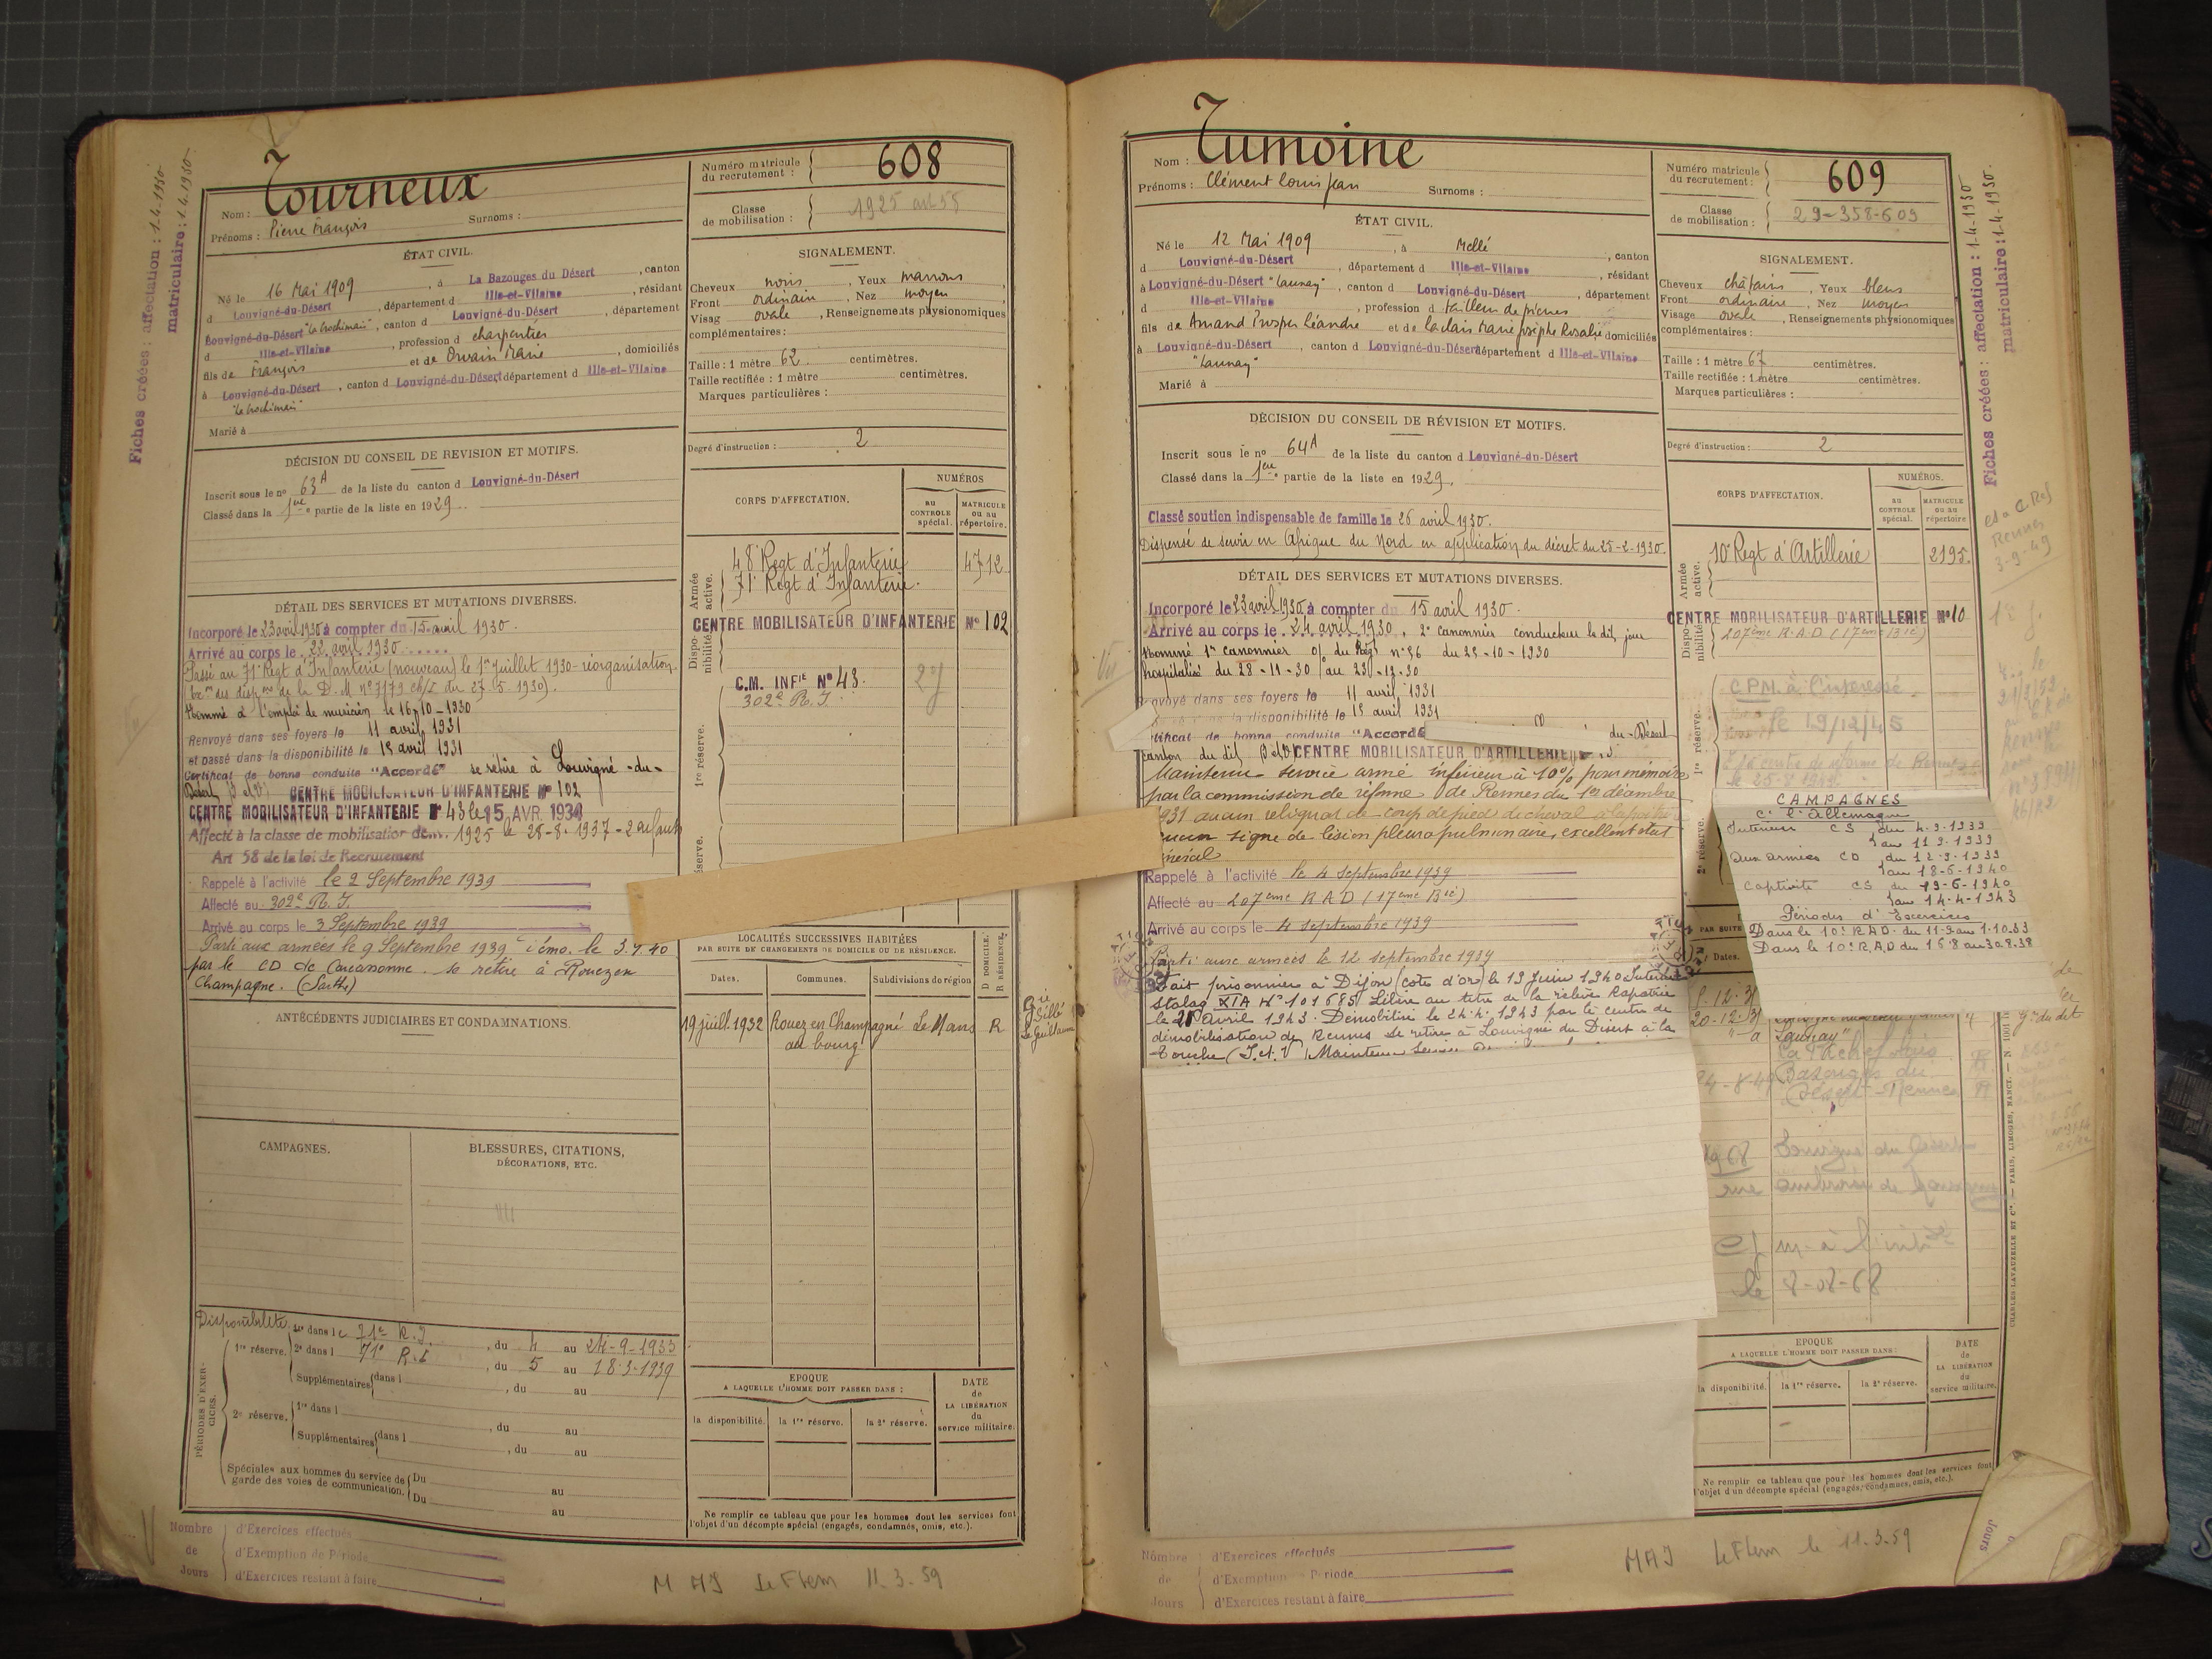 Fiches créées : affectation : 1-4-1930
matriculaire : 1.4.1930
Nom : Tourneux
Prénoms : Pierre François Surnoms :
Numéro matricule
du recrutement : 608
Classe
de mobilisation : 1925 art 58
ÉTAT CIVIL.
Né le 16 Mai 1909, à La Bazouges du Désert, canton
d Louvigné-du-Désert, département d Ille-et-Vilaine, résidant
Louvigné-du-Désert, canton d Louvigné-du-Désert, département
d Ille-et-Vilaine, profession d charpentier
fils de François et de Orvain Marie, domiciliés
à Louvigné-du-Désert, canton d Louvigné-du-Désert département d Ille-et-Vilaine
Marié à
SIGNALEMENT.
Cheveux noirs, Yeux marrons,
Front ordinaire, Nez moyen,
Visage ovale, Renseignements physionomiques
complémentaires :
Taille : 1 mètre 62 centimètres.
Taille rectifiée : 1 mètre centimètres.
Marques particulières :
Degré d'instruction : 2
DÉCISION DU CONSEIL DE REVISION ET MOTIFS.
Inscrit sous le no 63A de la liste du canton d Louvigné-du-Désert
Classé dans la 1ère partie de la liste en 1929.
CORPS D'AFFECTATION.
NUMÉROS
AU CONTROLE spécial.
MATRICULE ou au répertoire.
Armée active.
48e Regt d'Infanterie 4712
71e Regt d'Infanterie.
Disponibilité
CENTRE MOBILISATEUR D'INFANTERIE No 102
C.M. INFIE No 43.
302e R.I.
1re réserve.
DÉTAIL DES SERVICES ET MUTATIONS DIVERSES.
Incorporé le 23 avril 1930 à compter du 15 avril 1930.
Arrivé au corps le 23 avril 1930
Passé au 71e Regt d'Infanterie (nouveau) le 1er Juillet 1930 - réorganisation -
Nommé à l'emploi de musicien le 16-10-1930
Renvoyé dans ses foyers le 11 avril 1931
et passé dans la disponibilité le 15 avril 1931
Certificat de bonne conduite "Accordé" se retire à Louvigné-du-
Désert
CENTRE MOBILISATEUR D'INFANTERIE No 102
CENTRE MOBILISATEUR D'INFANTERIE No 43 le 15 AVR. 1934
Affecté à la classe de mobilisation de 1925 le 28-8-1937 - 2 enfants
Art 58 de la loi de Recrutement
Rappelé à l'activité le 2 Septembre 1939
Affecté au 302e R.I.
Arrivé au corps le 3 Septembre 1939
Parti aux armées le 9 Septembre 1939 démo. le 3.7.40
par le CD de Carcassonne. se retire à Rouez en
Champagne. (Sarthe)
ANTÉCÉDENTS JUDICIAIRES ET CONDAMNATIONS.
LOCALITÉS SUCCESSIVES HABITÉES
PAR SUITE DE CHANGEMENTS DE DOMICILE OU DE RÉSIDENCE.
Dates. Communes. Subdivisions de région
D DOMICILE.
R RÉSIDENCE.
19 juill. 1932 Rouez en Champagne Le Mans R
au bourg
CAMPAGNES.
BLESSURES, CITATIONS,
DÉCORATIONS, ETC.
PÉRIODES D'EXERCICES.
Disponibilité
1re dans le 71e R.I., du 4 au 24-9-1933
1re réserve. 2e dans l 71e R.I., du 5 au 18-3-1939
Supplémentaires dans l, du au
2e réserve. 1re dans l, du au
Supplémentaires dans l, du au
Spéciales aux hommes du service de
garde des voies de communication.
Du au
Du au
EPOQUE
A LAQUELLE L'HOMME DOIT PASSER DANS :
la disponibilité. la 1re réserve. la 2e réserve.
DATE
de
LA LIBÉRATION
du
service militaire.
Ne remplir ce tableau que pour les hommes dont les services font
l'objet d'un décompte spécial (engagés, condamnés, omis, etc.).
Nombre de Jours
d'Exercices effectués
d'Exemption de Période
d'Exercices restant à faire
MAJ Le Flem 11.3.59
Nom : Tumoine
Prénoms : Clément Louis Jean Surnoms :
Numéro matricule
du recrutement : 609
Classe
de mobilisation : 29-358-609
Fiches créées : affectation : 1-4-1930
matriculaire : 1-4-1930.
ÉTAT CIVIL.
Né le 12 Mai 1909, à Mellé, canton
d Louvigné-du-Désert, département d Ille-et-Vilaine, résidant
à Louvigné-du-Désert "Launay", canton d Louvigné-du-Désert, département
d Ille-et-Vilaine, profession d tailleur de pierres
fils de Amand Prosper Léandre et de Ladais Marie Josèphe Rosalie domiciliés
à Louvigné-du-Désert, canton d Louvigné-du-Désert département d Ille-et-Vilaine
"Launay"
Marié à
SIGNALEMENT.
Cheveux châtains, Yeux bleus
Front ordinaire, Nez moyen
Visage ovale, Renseignements physionomiques
complémentaires :
Taille : 1 mètre 67 centimètres.
Taille rectifiée : 1 mètre centimètres.
Marques particulières :
Degré d'instruction : 2
DÉCISION DU CONSEIL DE RÉVISION ET MOTIFS.
Inscrit sous le no 64A de la liste du canton d Louvigné-du-Désert
Classé dans la 1ère partie de la liste en 1929.
Classé soutien indispensable de famille le 26 avril 1930.
Dispensé de servir en Afrique du Nord en application du décret du 25-2-1930.
CORPS D'AFFECTATION.
NUMÉROS.
AU CONTROLE spécial.
MATRICULE ou au répertoire
Armée active.
10e Regt d'Artillerie 2195.
Disponibilité
CENTRE MOBILISATEUR D'ARTILLERIE No 10
207ème R.A.D (17ème Bie)
1re réserve.
C.P.M. à l'intéressé
le 19/12/45
2e réserve.
DÉTAIL DES SERVICES ET MUTATIONS DIVERSES.
Incorporé le 23 avril 1930 à compter du 15 avril 1930.
Arrivé au corps le 24 avril 1930, 2e canonnier conducteur le dit jour
Nommé 1er canonnier o/ du Régt no 86 du 25-10-1930
hospitalisé du 28-11-30 au 23-12-30
envoyé dans ses foyers le 11 avril 1931
la disponibilité le 15 avril 1931
tificat de bonne conduite "Accordé du-Désert
canton du dit CENTRE MOBILISATEUR D'ARTILLERIE
Maintenu service armé inférieur à 10% pour mémoire
par la commission de réforme de Rennes du 1er décembre
1931 aucun reliquat de coup de pied de cheval à la poitrine
aucun signe de lésion pleuro pulmonaire, excellent état
général
Rappelé à l'activité le 4 septembre 1939
Affecté au 207ème RAD (17ème Bie)
Arrivé au corps le 4 septembre 1939
Parti aux armées le 12 septembre 1939
Fait prisonnier à Dijon (côte d'or) le 19 Juin 1940 Interné
Stalag XIA No 101685 Libéré au titre de la relève Rapatrié
le 21 avril 1943. Démobilisé le 24.4.1943 par le centre de
démobilisation de Rennes se retire à Louvigné du Désert à la
Touche (I.et.V) Maintenu Service
CAMPAGNES
C. l'Allemagne
Intérieur CS du 4-9-1939
au 11-9-1939
aux armées CD du 12-9-1939
au 18-6-1940
Captivité CS du 19-6-1940
au 14-4-1943
Périodes d'Exercices
Dans le 10e RAD du 11-9 au 1-10.33
Dans le 10e RAD du 16 8 au 30.8.38
PAR SUITE
Dates.
20-12-31
Launay"
Bazouges du
Désert - Rennes R
1968 Louvigné du Désert
rue
le 8-08-68
EPOQUE
A LAQUELLE L'HOMME DOIT PASSER DANS :
la disponibilité. la 1re réserve. la 2e réserve.
DATE
de
LA LIBÉRATION
du
service militaire.
Ne remplir ce tableau que pour les hommes dont les services font
l'objet d'un décompte spécial (engagés, condamnés, omis, etc.).
CHARLES-LAVAUZELLE ET Cie — PARIS, LIMOGES, NANCY.
Nombre de Jours
d'Exercices effectués
d'Exemption Période
d'Exercices restant à faire
MAJ Le Flem le 11.3.59
Jours